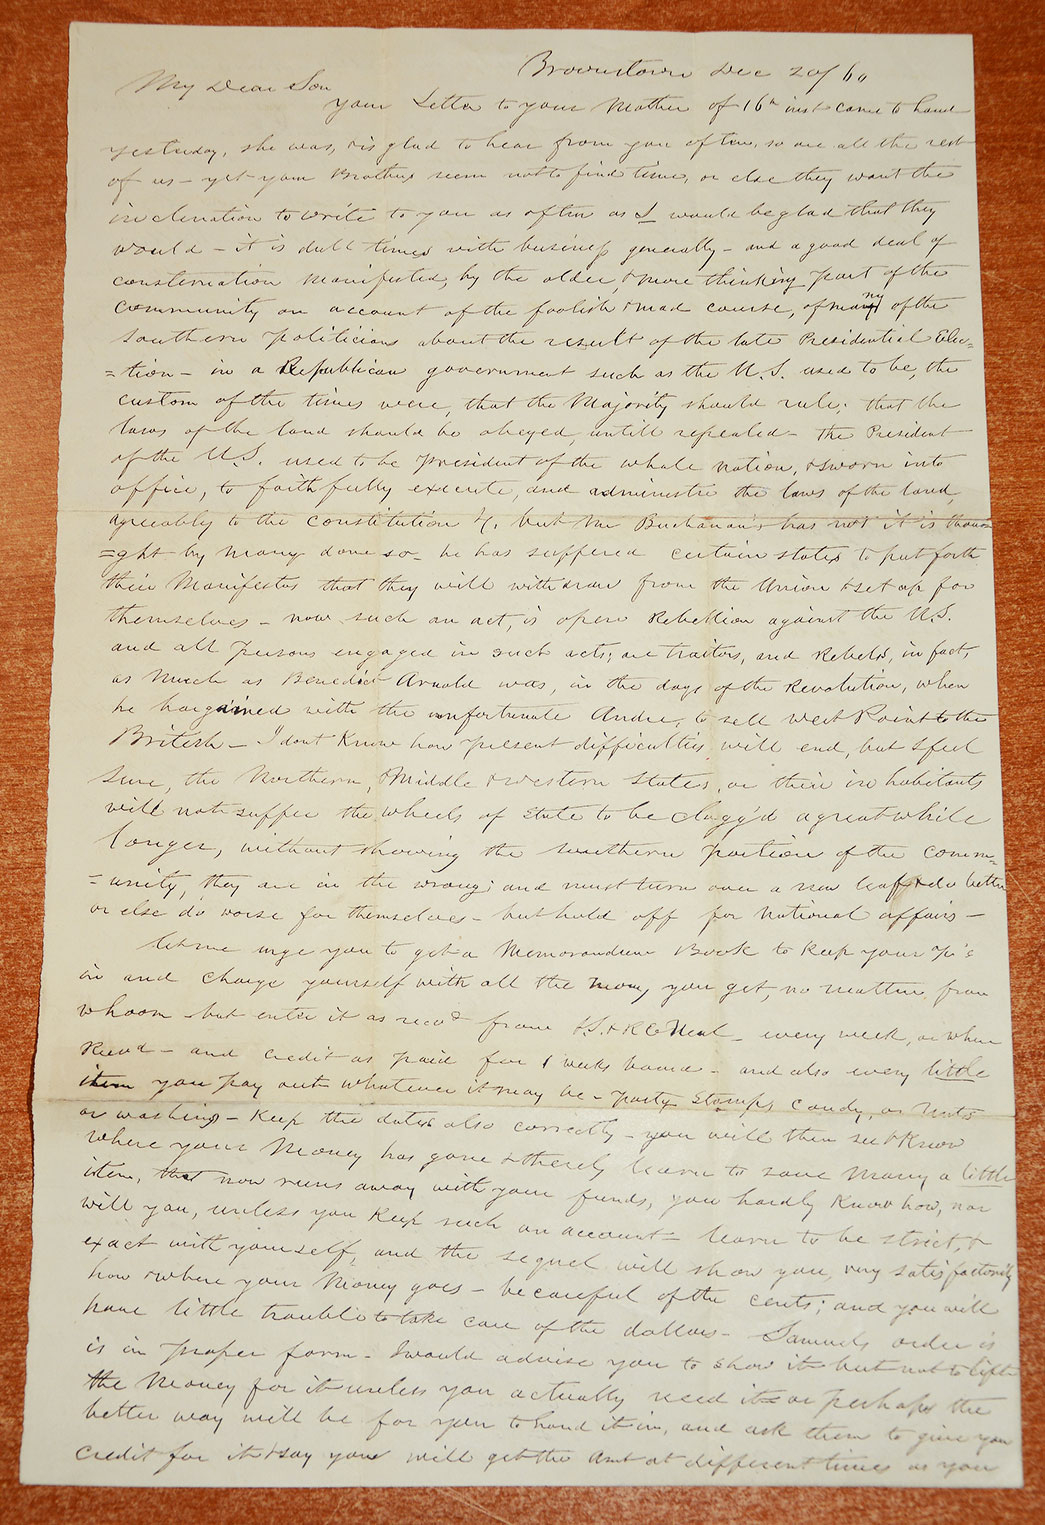 Brownstown Dec 20/60
My Dear Son
your Letter to your Mother of 16th inst came to hand
yesterday, she was, & is glad to hear from you often, so are all the rest
of us – yet your Brothers seem not to find time, or else they want the
inclination to write to you as often as I would be glad that they
would – it is dull times with business generally – and a good deal of
consternation manifested, by the older & more thinking part of the
community on account of the foolish & mad course, of many of the
Southern politicians about the result of the late Presidential Elec=
=tion – in a Republican government such as the U.S. used to be, the
custom of the times were, that the Majority should rule. that the
laws of the land should be obeyed, untill repealed – the President
of the U.S. used to be president of the whole nation, & sworn into
office, to faithfully execute, and administer the laws of the land,
agreeably to the constitution &c. but Mr Buchanan, has not it is thou
=ght by many done so – he has suffered certain states to put forth
their Manifestos that they will withdraw from the Union & set up for
themselves – now such an act, is open Rebellion against the U.S.
and all persons engaged in such acts, are traitors, and Rebels, in fact,
as much as Benedict Arnold was, in the days of the Revolution, when
he bargained with the unfortunate Andre, to sell West Point to the
British – I dont Know how present difficulties will end, but I feel
sure, the Northern, & Middle & western states, or their inhabitants
will not suffer the wheels of state to be clogg'd a great while
longer, without showing the southern portion of the comm=
=unity, they are in the wrong; and must turn over a new leaf & do better
or else do worse for themselves – but hold off for national affairs –
let me urge you to get a Memorandum Book to Keep your a/c's
in and charge yourself with all the money you get, no matter from
whoom – but enter it as recvd from & R C Neal – every week, or when
Recvd – and credit as paid for 1 weeks board – and also every little
item you pay out whatever it may be – Stamps, candy, or nuts
or washing – Keep the dates also correctly – you will then see & Know
where your Money has gone & thereby learn to save Money a little
item, that now runs away with your funds, you hardly Know how, nor
will you, unless you Keep such an account – learn to be strict, &
exact with yourself, and the sequel will show you, very satisfactorily
how & where your Money goes – be careful of the cents; and you will
have little trouble to take care of the dollars – Samuels order is
is in proper form – I would advise you to show it but not to lift
the Money for it unless you actually need it – or perhaps the
better way will be for you to hand it in, and ask them to give you
credit for it & say you will get the amt at different times as you